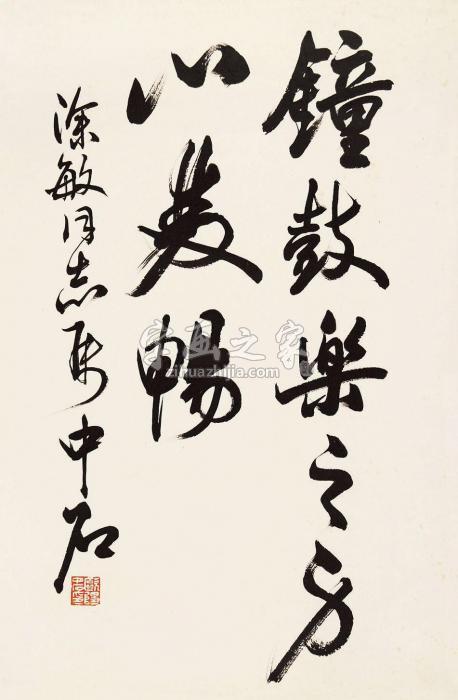 鐘鼓樂之方
心發暢
涂敏同志属中石
字画之家
zihuazhijia.com